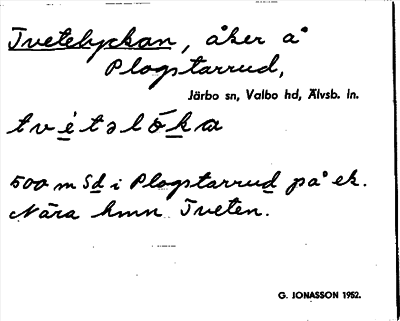 Tvetelyckan, åker å
Plogstarrud,
Järbo sn, Valbo hd, Älvsb. ln.
tvétəlökа
500 m Sd i Plogstarrud på ek.
Nära hmn Tveten.
G. JONASSON 1952.